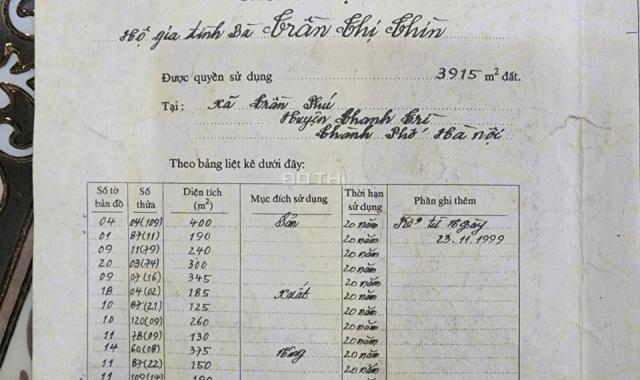 Hộ gia đình Bà Trần Thị Thìn
Được quyền sử dụng 3915 m² đất.
Tại : xã Trần Phú
Huyện Thanh Trì
Thành Phố Hà Nội
Theo bảng liệt kê dưới đây:
Số tờ bản đồ Số thửa Diện tích (m²) Mục đích sử dụng Thời hạn sử dụng Phần ghi thêm
04 04(109) 400 Sản 20 năm Kể từ ngày
01 87(11) 190 20 năm 23.11.1999
09 11(79) 240 20 năm
20 03(74) 300 20 năm
09 07(16) 345 20 năm
18 04(02) 185 xuất 20 năm
10 87(21) 125 20 năm
10 120(09) 260 20 năm
11 78(09) 130 20 năm
14 60(08) 375 nông 20 năm
11 87(22) 150 20 năm
11 109(14) 190 20 năm
ĐÔ THỊ